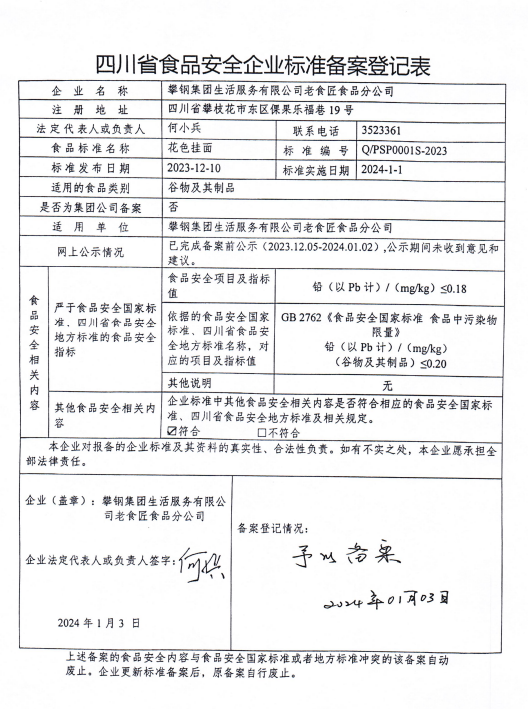 四川省食品安全企业标准备案登记表
企业名称 攀钢集团生活服务有限公司老食匠食品分公司
注册地址 四川省攀枝花市东区保果乐福巷 19 号
法定代表人或负责人 何小兵 联系电话 3523361
食品标准名称 花色挂面 标准编号 Q/PSP0001S-2023
标准发布日期 2023-12-10 标准实施日期 2024-1-1
适用的食品类别 谷物及其制品
是否为集团公司备案 否
适用单位 攀钢集团生活服务有限公司老食匠食品分公司
网上公示情况 已完成备案前公示（2023.12.05-2024.01.02）,公示期间未收到意见和
建议。
食品安全相关内容
严于食品安全国家标
准、四川省食品安全
地方标准的食品安全
指标
食品安全项目及指标
值
铅（以 Pb 计）/（mg/kg）≤0.18
依据的食品安全国家
标准、四川省食品安
全地方标准名称，对
应的项目及指标值
GB 2762《食品安全国家标准 食品中污染物
限量》
铅（以 Pb 计）/（mg/kg）
（谷物及其制品）≤0.20
其他说明 无
其他食品安全相关内
容
企业标准中其他食品安全相关内容是否符合相应的食品安全国家标
准、四川省食品安全地方标准及相关规定。
☑符合 □不符合
本企业对报备的企业标准及其资料的真实性、合法性负责。如有不实之处，本企业愿承担全
部法律责任。
企业（盖章）：攀钢集团生活服务有限公
司老食匠食品分公司
企业法定代表人或负责人签字：
2024 年 1 月 3 日
备案登记情况：
予以备案
2024年01月03日
上述备案的食品安全内容与食品安全国家标准或者地方标准冲突的该备案自动
废止。企业更新标准备案后，原备案自行废止。